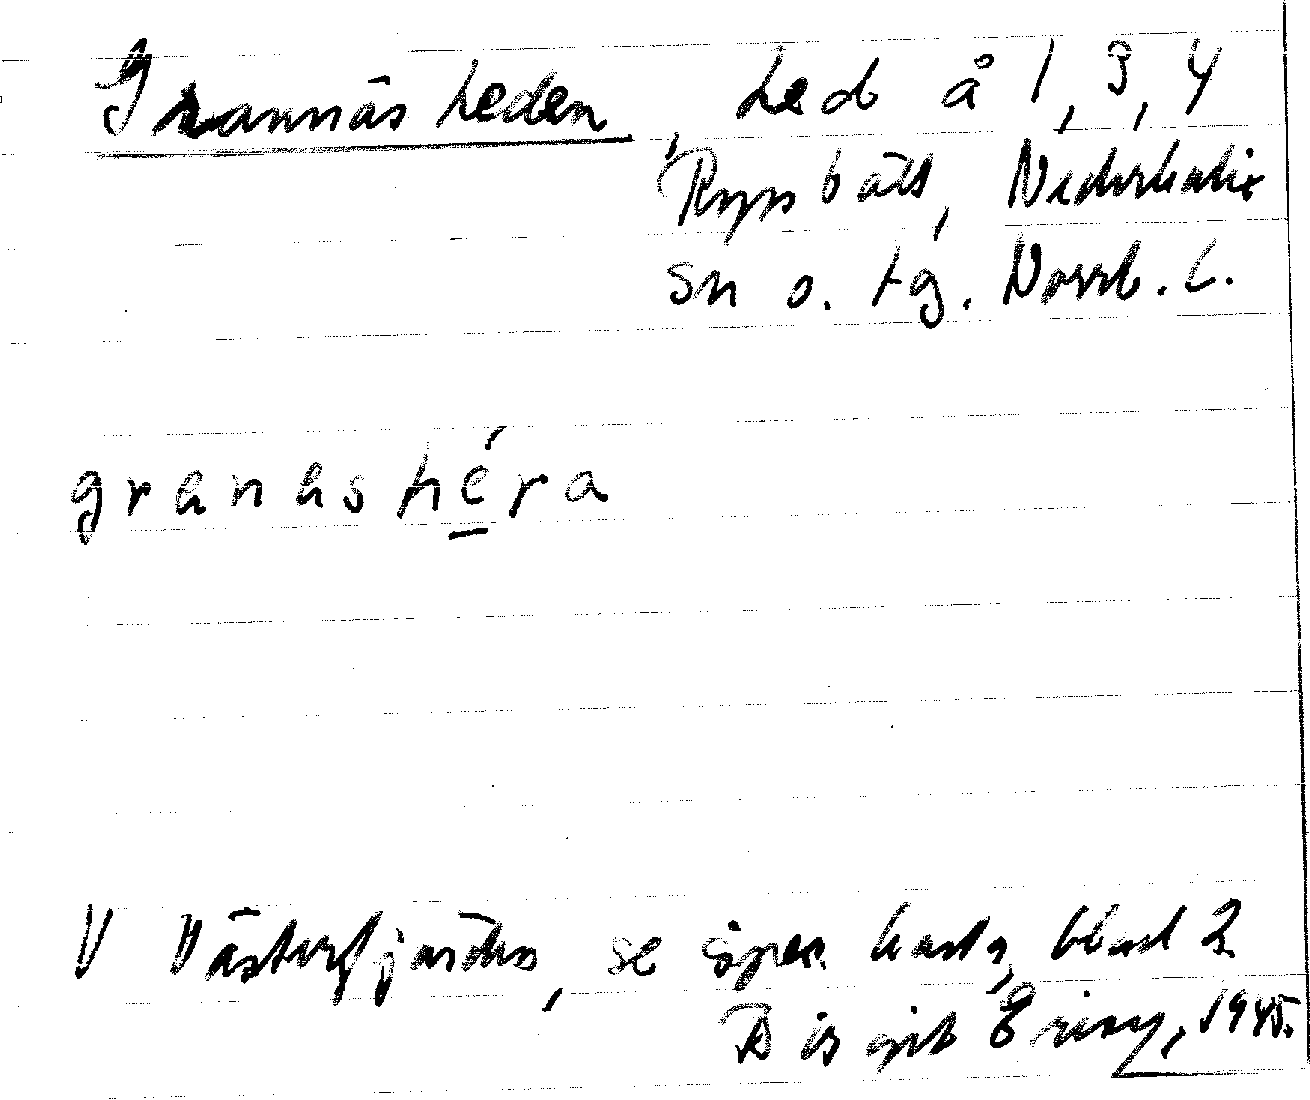 Grannäsheden, hed å 1, 3, 4
Ryssbält, Nederkalix
sn o. tg. Norrb. l.
granashéra
V Västerfjärden, se spec. karta, blad 2
Birgit Ericy, 1945.